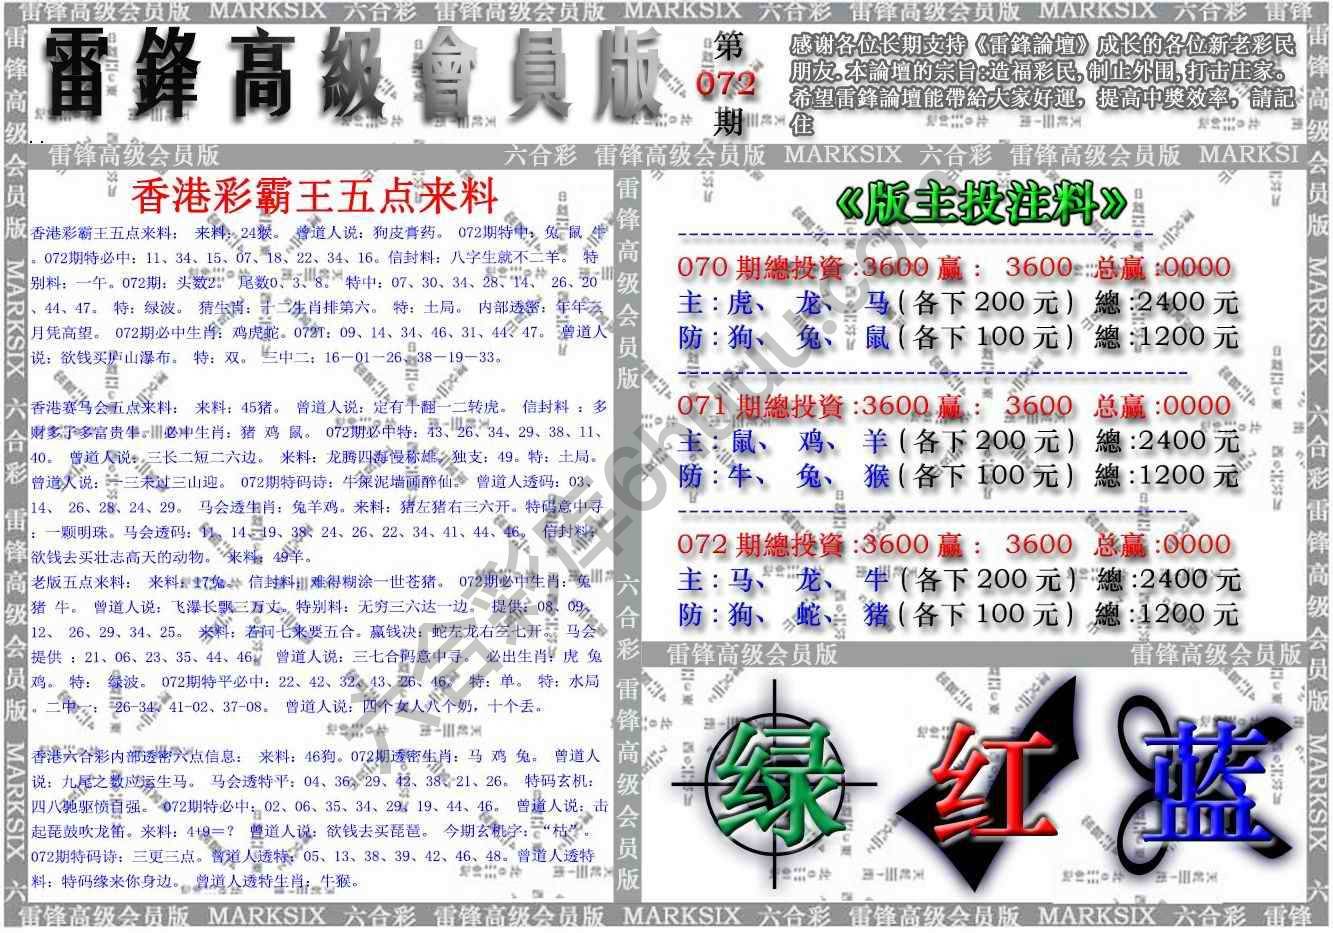 雷锋高级会员版 MARKSIX 六合彩 雷锋高级会员版 MARKSIX 六合彩 雷锋高级会员版 MARKSIX 六合彩 雷锋
雷鋒高級會員版
第
072
期
感谢各位长期支持《雷鋒論壇》成长的各位新老彩民
朋友.本論壇的宗旨:造福彩民,制止外围,打击庄家。
希望雷鋒論壇能帶給大家好運，提高中獎效率，請記
住
雷锋高级会员版 六合彩 雷锋高级会员版 MARKSIX 六合彩 雷锋高级会员版 MARKSI
香港彩霸王五点来料
香港彩霸王五点来料； 来料：24猴。 曾道人说：狗皮膏药。 072期特中：兔 鼠 牛
。072期特必中：11、34、15、07、18、22、34、16。信封料：八字生就不二羊。 特
别料：一午。072期：头数2。 尾数0、3、8。 特中：07、30、34、28、14、 26、20
、44、47。 特：绿波。 猜生肖：十二生肖排第六。 特：土局。 内部透密：年年三
月凭高望。 072期必中生肖：鸡虎蛇。072T：09、14、34、46、31、44、47。 曾道人
说：欲钱买庐山瀑布。 特：双。 三中二；16－01－26、38－19－33。
香港赛马会五点来料： 来料：45猪。 曾道人说：定有十翻一二转虎。 信封料 ：多
财多了多富贵牛。 必中生肖：猪 鸡 鼠。 072期必中特：43、26、34、29、38、11、
40。 曾道人说：三长二短二六边。 来料：龙腾四海慢称雄。独支：49。特：土局。
曾道人说：一三未过三山迎。 072期特码诗：牛屎泥墙画醉仙。 曾道人透码：03、
14、 26、28、24、29。 马会透生肖：兔羊鸡。来料：猪左猪右三六开。特码意中寻
：一颗明珠。马会透码：11、14、19、38、24、26、22、34、41、44、46。 信封料：
欲钱去买壮志高天的动物。 来料：49羊。
老版五点来料： 来料：17兔。 信封料：难得糊涂一世苍猪。 072期必中生肖：兔
猪 牛。 曾道人说：飞瀑长飘三万丈。特别料：无穷三六达一边。 提供：08、09、
12、 26、29、34、25。 来料：若问七来要五合。赢钱决：蛇左龙右三七开。 马会
提供 ：21、06、23、35、44、46。 曾道人说：三七合码意中寻。 必出生肖：虎 兔
鸡。 特： 绿波。 072期特平必中：22、42、32、43、26、46。 特：单。 特：水局
。二中一： 26-34、41-02、37-08。 曾道人说：四个女人八个奶，十个丢。
香港六合彩内部透密六点信息： 来料：46狗。072期透密生肖：马 鸡 兔。 曾道人
说：九尾之数应运生马。 马会透特平：04、36、29、42、38、21、26。 特码玄机：
四八驰驱愤自强。 072期特必中：02、06、35、34、29、19、44、46。 曾道人说：击
起琵鼓吹龙笛。来料：4+9＝？ 曾道人说：欲钱去买琵琶。 今期玄机字：“枯”。
072期特码诗：三更三点。曾道人透特：05、13、38、39、42、46、48。曾道人透特
料：特码缘来你身边。 曾道人透特生肖：牛猴。
雷锋高级会员版 六合彩 雷锋高级会员版
《版主投注料》
070 期總投資 :3600 赢 : 3600 总赢 :0000
主 : 虎、 龙、 马 ( 各下 200 元 ) 總 :2400 元
防 : 狗、 兔、 鼠 ( 各下 100 元 ) 總 :1200 元
071 期總投資 :3600 赢 : 3600 总赢 :0000
主 : 鼠、 鸡、 羊 ( 各下 200 元 ) 總 :2400 元
防 : 牛、 兔、 猴 ( 各下 100 元 ) 總 :1200 元
072 期總投資 :3600 赢 : 3600 总赢 :0000
主 : 马、 龙、 牛 ( 各下 200 元 ) 總 :2400 元
防 : 狗、 蛇、 猪 ( 各下 100 元 ) 總 :1200 元
雷锋高级会员版 雷锋高级会员版
绿 红 蓝
雷锋高级会员版 MARKSIX 六合彩 雷锋高级会员版 MARKSIX 六合彩
雷锋高级会员版 MARKSIX 六合彩 雷锋高级会员版 MARKSIX 六
雷锋高级会员版 MARKSIX 六合彩 雷锋高级会员版 MARKSIX 六合彩 雷锋高级会员版 MARKSIX 六合彩 雷锋